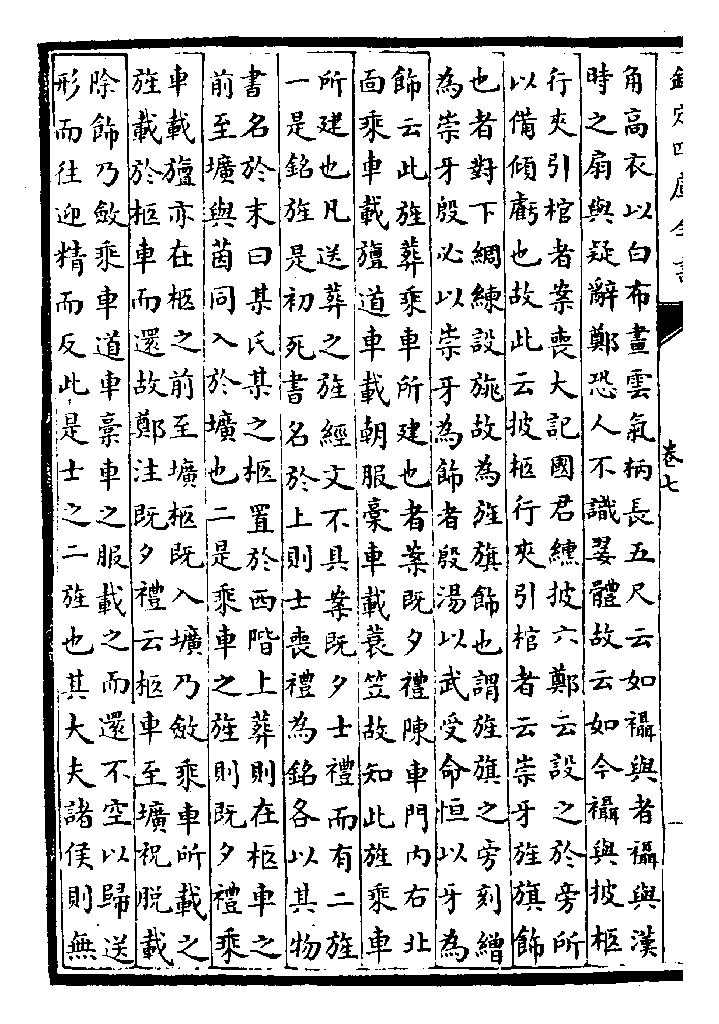 欽定四庫全書
卷七
角高衣以白布畫雲氣柄長五尺云如襵與者襵與漢
時之扇與疑辭鄭恐人不識翣體故云如今襵與披柩
行夾引棺者案喪大記國君纁披六鄭云設之於旁所
以備傾虧也故此云披柩行夾引棺者云崇牙旌旗飾
也者對下綢練設旐故為旌旗飾也謂旌旗之旁刻繒
為崇牙殷必以崇牙為飾者殷湯以武受命恒以牙為
飾云此旌葬乘車所建也者案既夕禮陳車門内右北
面乘車載旜道車載朝服槀車載蓑笠故知此旌乘車
所建也凡送葬之旌經文不具案既夕士禮而有二旌
一是銘旌是初死書名於上則士喪禮為銘各以其物
書名於末曰某氏某之柩置於西階上葬則在柩車之
前至壙與茵同入於壙也二是乘車之旌則既夕禮乘
車載旜亦在柩之前至壙柩既入壙乃斂乘車所載之
旌載於柩車而還故鄭注既夕禮云柩車至壙祝脱載
除飾乃斂乘車道車槀車之服載之而還不空以歸送
形而往迎精而反此是士之二旌也其大夫諸侯則無